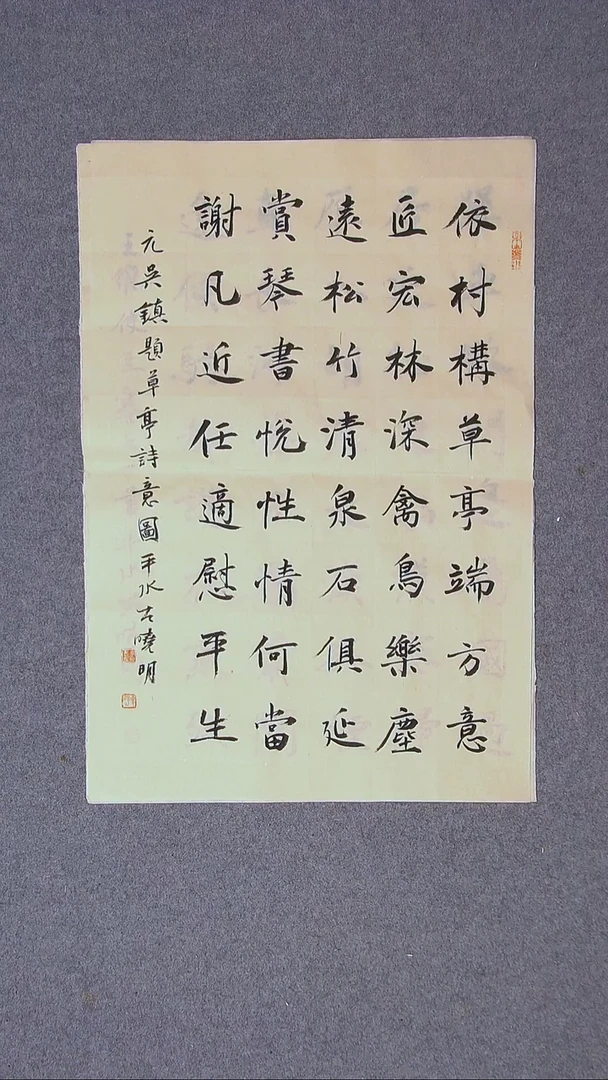 依村構草亭端方意
匠宏林深禽鳥樂塵
遠松竹清泉石俱延
賞琴書悅性情何當
謝凡近任適慰平生
元吳鎮題草亭詩意圖平水古曉明